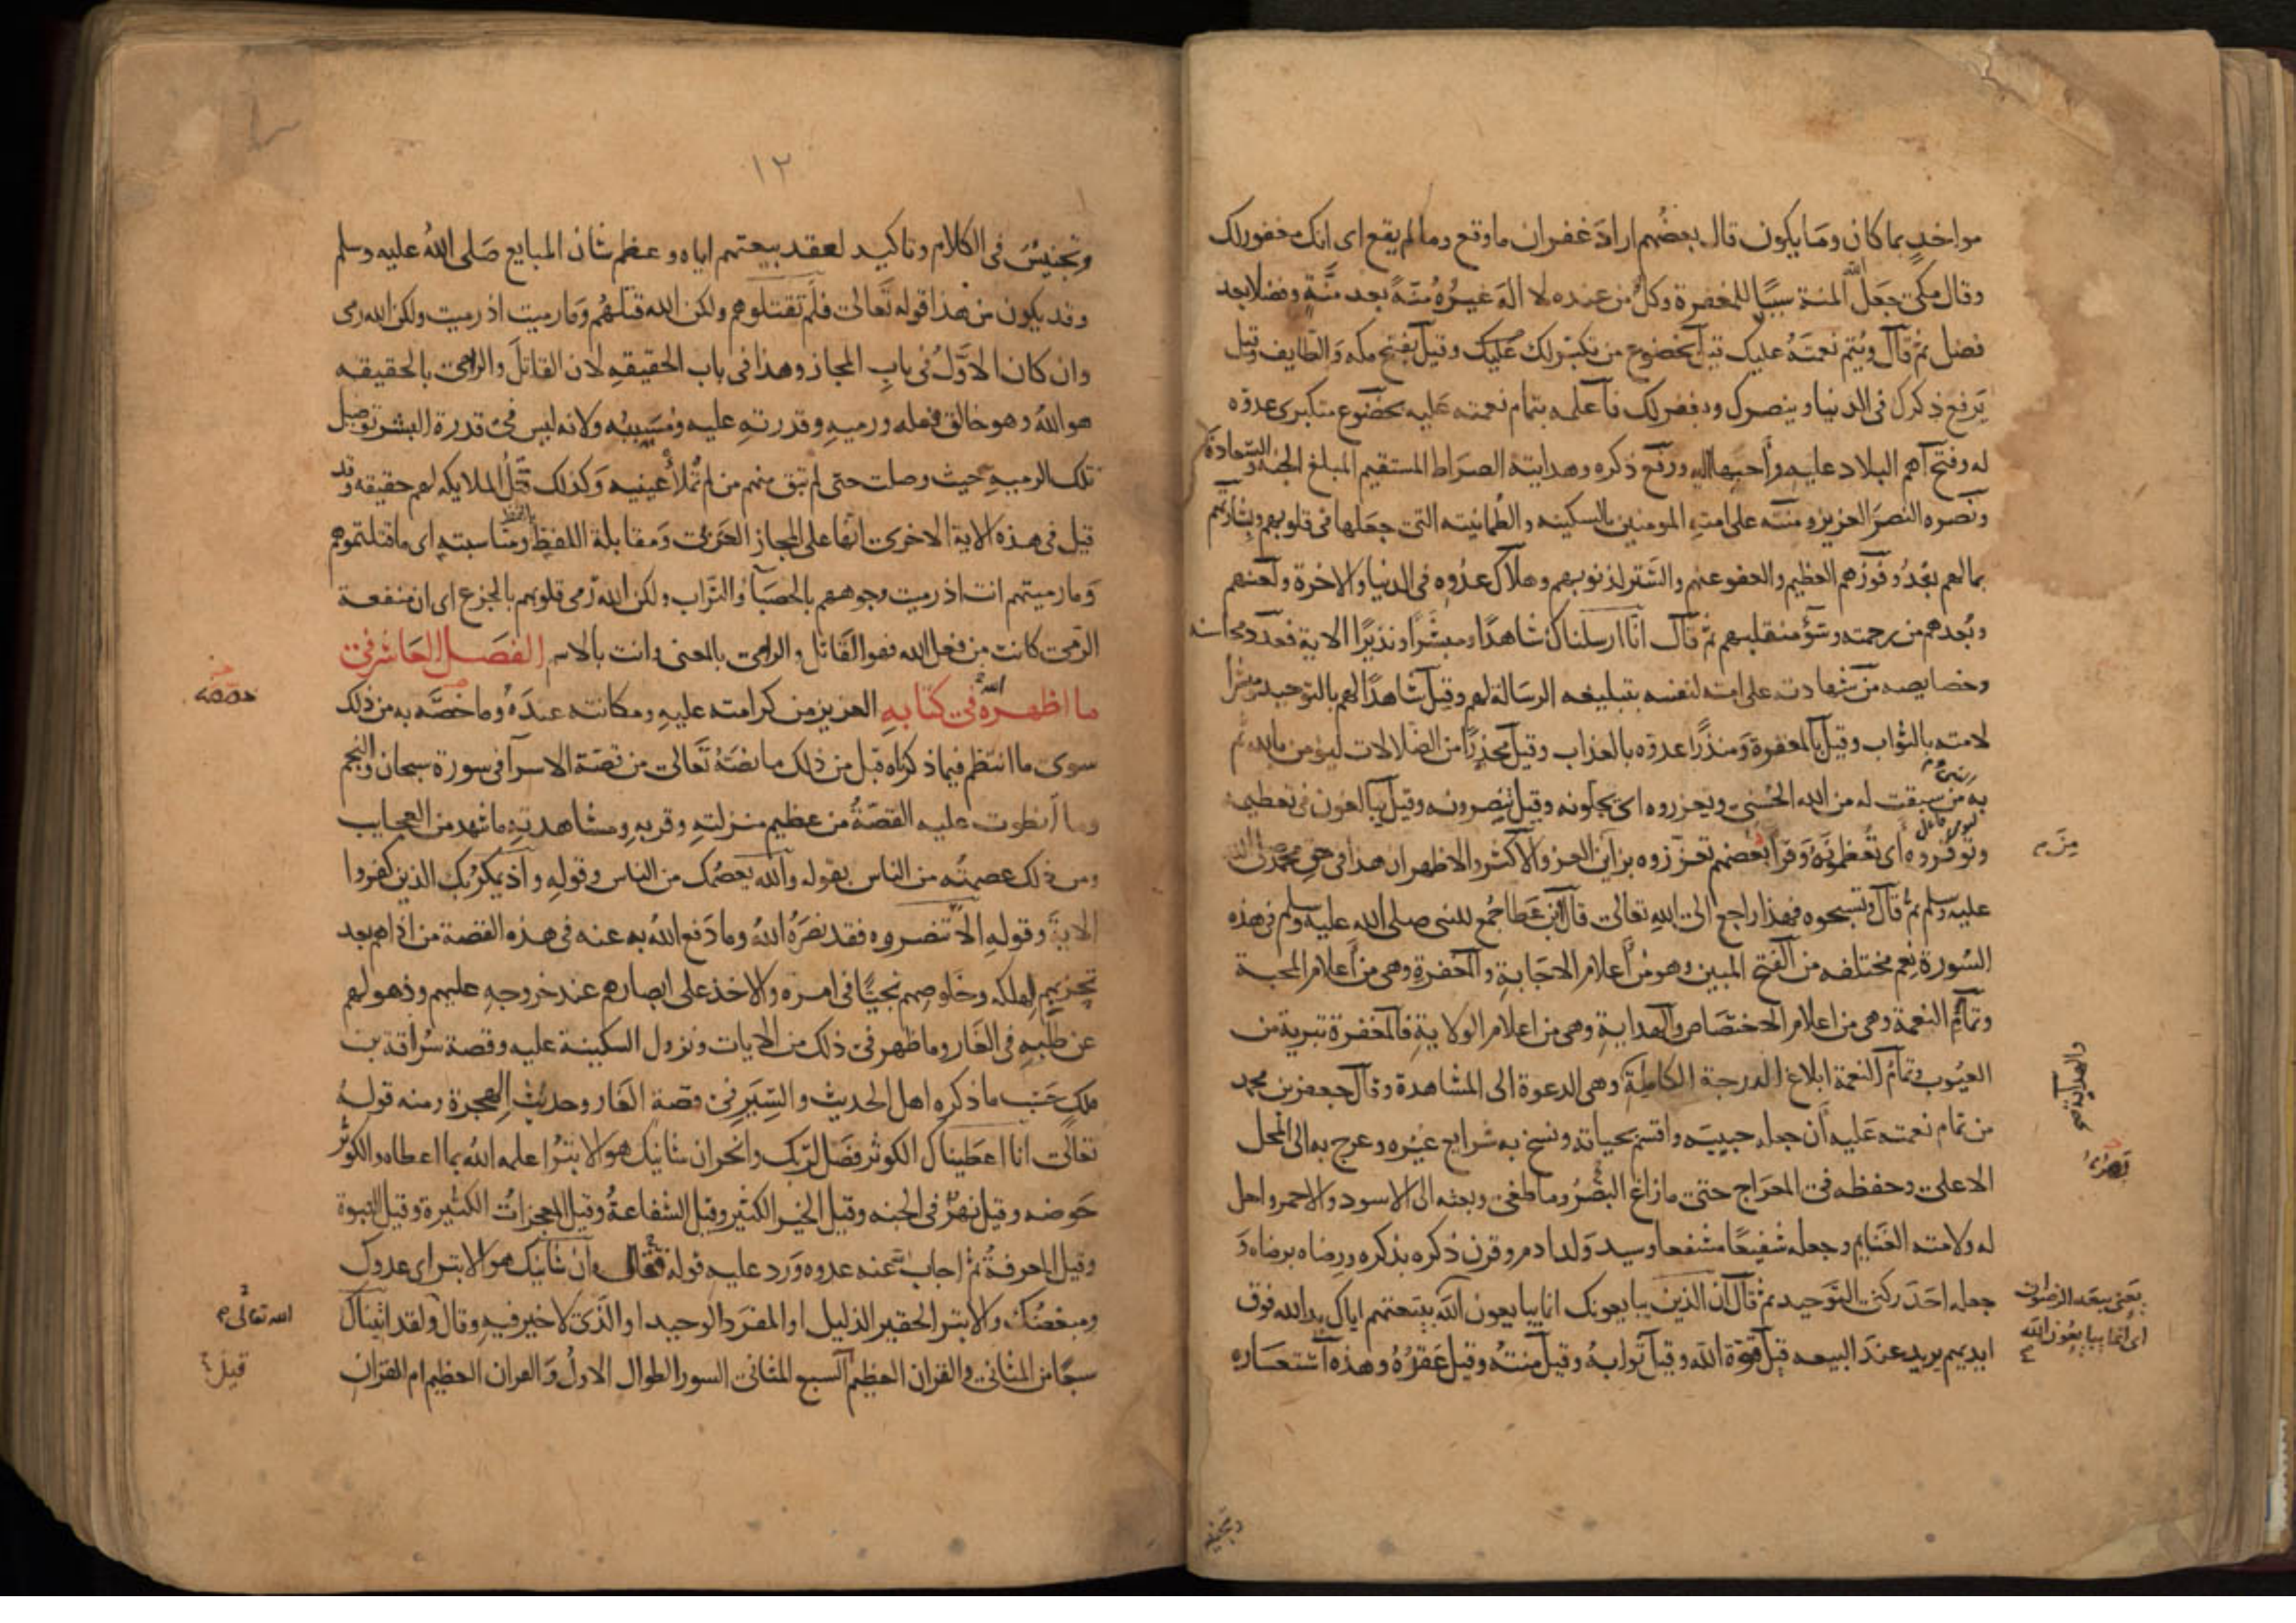 مواخذٍ بما كان وما يكون قال بعضهم اراد غفران ما وقع وما لم يقع اى انك مغفور لك
وقال مكى جعل الله المنة سببًا للمغفرة وكلٌ من عنده لا اله غيره منّة بعد منّةٍ وفضلا بعد
فضل ثم قال ويتم نعمته عليك قيل بخضوع من تكبر لك عليك وقيل بفتح مكه والطايف وقيل
يرفع ذكرك فى الدنيا وينصرك ويغفر لك فاعلمه بتمام نعمته عليه بخضوع متكبرى عدوه
له وفتح اهم البلاد عليه واحبها اليه ورفع ذكره وهدايته الصراط المستقيم المبلغ الجنه والسعادة
ونصره النصر العزيز ومنته على امته المومنين بالسكينه والطمانينه التى جعلها فى قلوبهم وبشارتهم
بما لهم بعدُ وفوزهم العظيم والعفو عنهم والستر لذنوبهم وهلاك عدوه فى الدنيا والاخرة ولعنهم
وبعدهم من رحمته وسوء منقلبهم ثم قال انا ارسلناك شاهدًا ومبشرًا ونذيرًا الاية فعدد محاسنه
وخصايصه من شهادته على امته لنفسه بتبليغه الرسالة لهم وقيل شاهدًا لهم بالتوحيد ومبشرا
لامته بالثواب وقيل بالمغفرة ومنذرًا عدوه بالعذاب وقيل محذرًا من الضلالات ليؤمن بالله ثم
به من سبقت له من الله الحسنى ويعزروه اى يجلونه وقيل ينصرونه وقيل يبالغون فى تعظيمه
وتوقروه اى تعظمونه وقرا بعضهم تعززوه بزاين من العز والاكثر والاظهر ان هذا فى حق محمد صلى الله
عليه وسلم ثم قال وتسبحوه فهذا راجع الى الله تعالى قال ابن عطا جُمع للنبى صلى الله عليه وسلم فى هذه
السورة نعم مختلفه من الفتح المبين وهو من اعلام الاجابةِ والمغفرةِ وهى من اعلام المحبة
وتمام النعمة وهى من اعلام الاختصاص والهدايةِ وهى من اعلام الولايةِ فالمغفرة تبرية من
العيوب وتمام النعمة ابلاغ الدرجة الكاملة وهى الدعوة الى المشاهدة وقال جعفر بن محمد
من تمام نعمته عليه ان جعله حبيبه واقسم بحياته ونسخ به شرايع غيره وعرج به الى المحل
الاعلى وحفظه فى المعراج حتى ما زاغ البصر وما طغى وبعثه الى الاسود والاحمر واحل
له ولامته الغنايم وجعله شفيعًا مشفعا وسيد ولد ادم وقرن ذكره بذكره ورضاه برضاه و
جعله احد ركنى التوحيد ثم قال ان الذين يبايعونك انما يبايعون الله ببيعتهم اياك يد الله فوق
ايديهم يريد عند البيعه قيل قوة الله وقيل ثوابه وقيل منته وقيل عقده وهذه استعاره
من م
والهداية صح
بصره
يعنى بيعة الرضوان
اى انما يبايعون الله
وتجنيس
١٢
وتجنيسٌ فى الكلام وتاكيد لعقد بيعتهم اياه وعظم شان المبايع صلى الله عليه وسلم
وقد يكون من هذا قوله تعالى فلم تقتلوهم ولكن الله قتلهم وما رميت اذ رميت ولكن الله رمى
وان كان الاول فى باب المجاز وهذا فى باب الحقيقهِ لان القاتل والرامى بالحقيقه
هو الله وهو خالق فعله ورميهِ وقدرتهِ عليه ومسببه ولانه ليس فى قدرة البشر توصيل
تلك الرميةِ حيث وصلت حتى لم تبق منهم من لم تملأ عينيه وكذلك قتل الملايكه لهم حقيقه وقد
قيل فى هذه الاية الاخرى انها على المجاز العربى ومقابلة اللفظ ومناسبته اى ما قتلتموهم
وما رميتهم انت اذ رميت وجوههم بالحصبا والتراب ولكن الله رمى قلوبهم بالجزع اى ان منفعة
الرمى كانت من فعل الله فهو القاتل والرامى بالمعنى وانت بالاسم الفصل العاشر فى
ما اظهره الله فى كتابه العزيز من كرامته عليه ومكانته عنده وما خصه به من ذلك
سوى ما انتظم فيما ذكرناه قبل من ذلك ما نصه تعالى من قصة الاسرا فى سورة سبحان والنجم
وما انطوت عليه القصة من عظيم منزلتهِ وقربهِ ومشاهدتهِ ما شهد من العجايب
ومن ذلك عصمته من الناس بقوله والله يعصمك من الناس وقولهِ واذ يمكر بك الذين كفروا
الاية وقولهِ الا تنصروه فقد نصره الله وما دفع الله به عنه فى هذه القصة من اذاهم بعد
تحزبهم لهلكه وخلوصهم نجيًا فى امره والاخذ على ابصارهم عند خروجهِ عليهم وذهولهم
عن طلبهِ فى الغار وما ظهر فى ذلك من الايات ونزول السكينة عليه وقصة سراقة بن
ملك حسب ما ذكره اهل الحديث والسير فى قصة الغار وحديث الهجرة ومنه قوله
تعالى انا اعطيناك الكوثر فصل لربك وانحر ان شانيك هو الابتر اعلمه الله بما اعطاه والكوثر
حوضه وقيل نهر فى الجنه وقيل الخير الكثير وقيل الشفاعة وقيل المعجزات الكثيرة وقيل النبوة
وقيل المعرفة ثم اجاب عنه عدوه ورد عليه قوله فقال ان شانيك هو الابتر اى عدوك
ومبغضك والابتر الحقير الذليل او المفرد الوحيد او الذى لا خير فيهِ وقال ولقد اتيناك
سبعًا من المثانى والقران العظيم السبع المثانى السور الطوال الاول والقران العظيم ام القران
الله تعالى
قيل